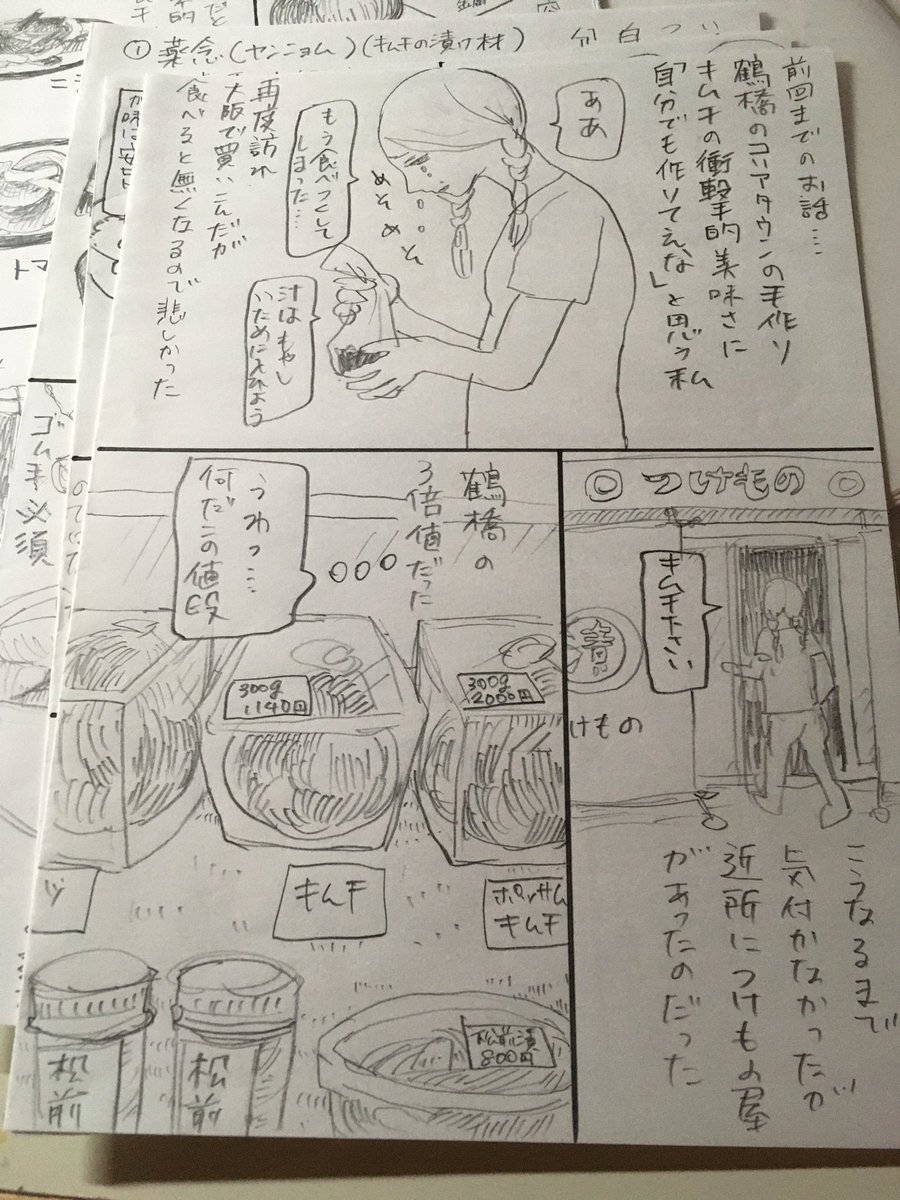 ① 薬念(ヤンニョム)(キムチの漬け材)
前回までのお話…
鶴橋のコリアタウンの手作り
キムチの衝撃的美味さに
「自分でも作りてえな」と思う私
ああ
めそめそ
もう食べつくして
しまった…
汁はもやし
いためにしよう
再度訪れ
大阪で買いこんだが
食べると無くなるので悲しかった
◎つけもの◎
キムチ下さい
漬
けもの
こうなるまで
気付かなかったが
近所につけもの屋
があったのだった
鶴橋の
3倍値だった
○○○
うわっ…
何だこの値段
300g
2000円
300g
1140円
ポッサム
キムチ
キムチ
ツ
松前漬
800円
松前
松前
ゴム手必須
トマ